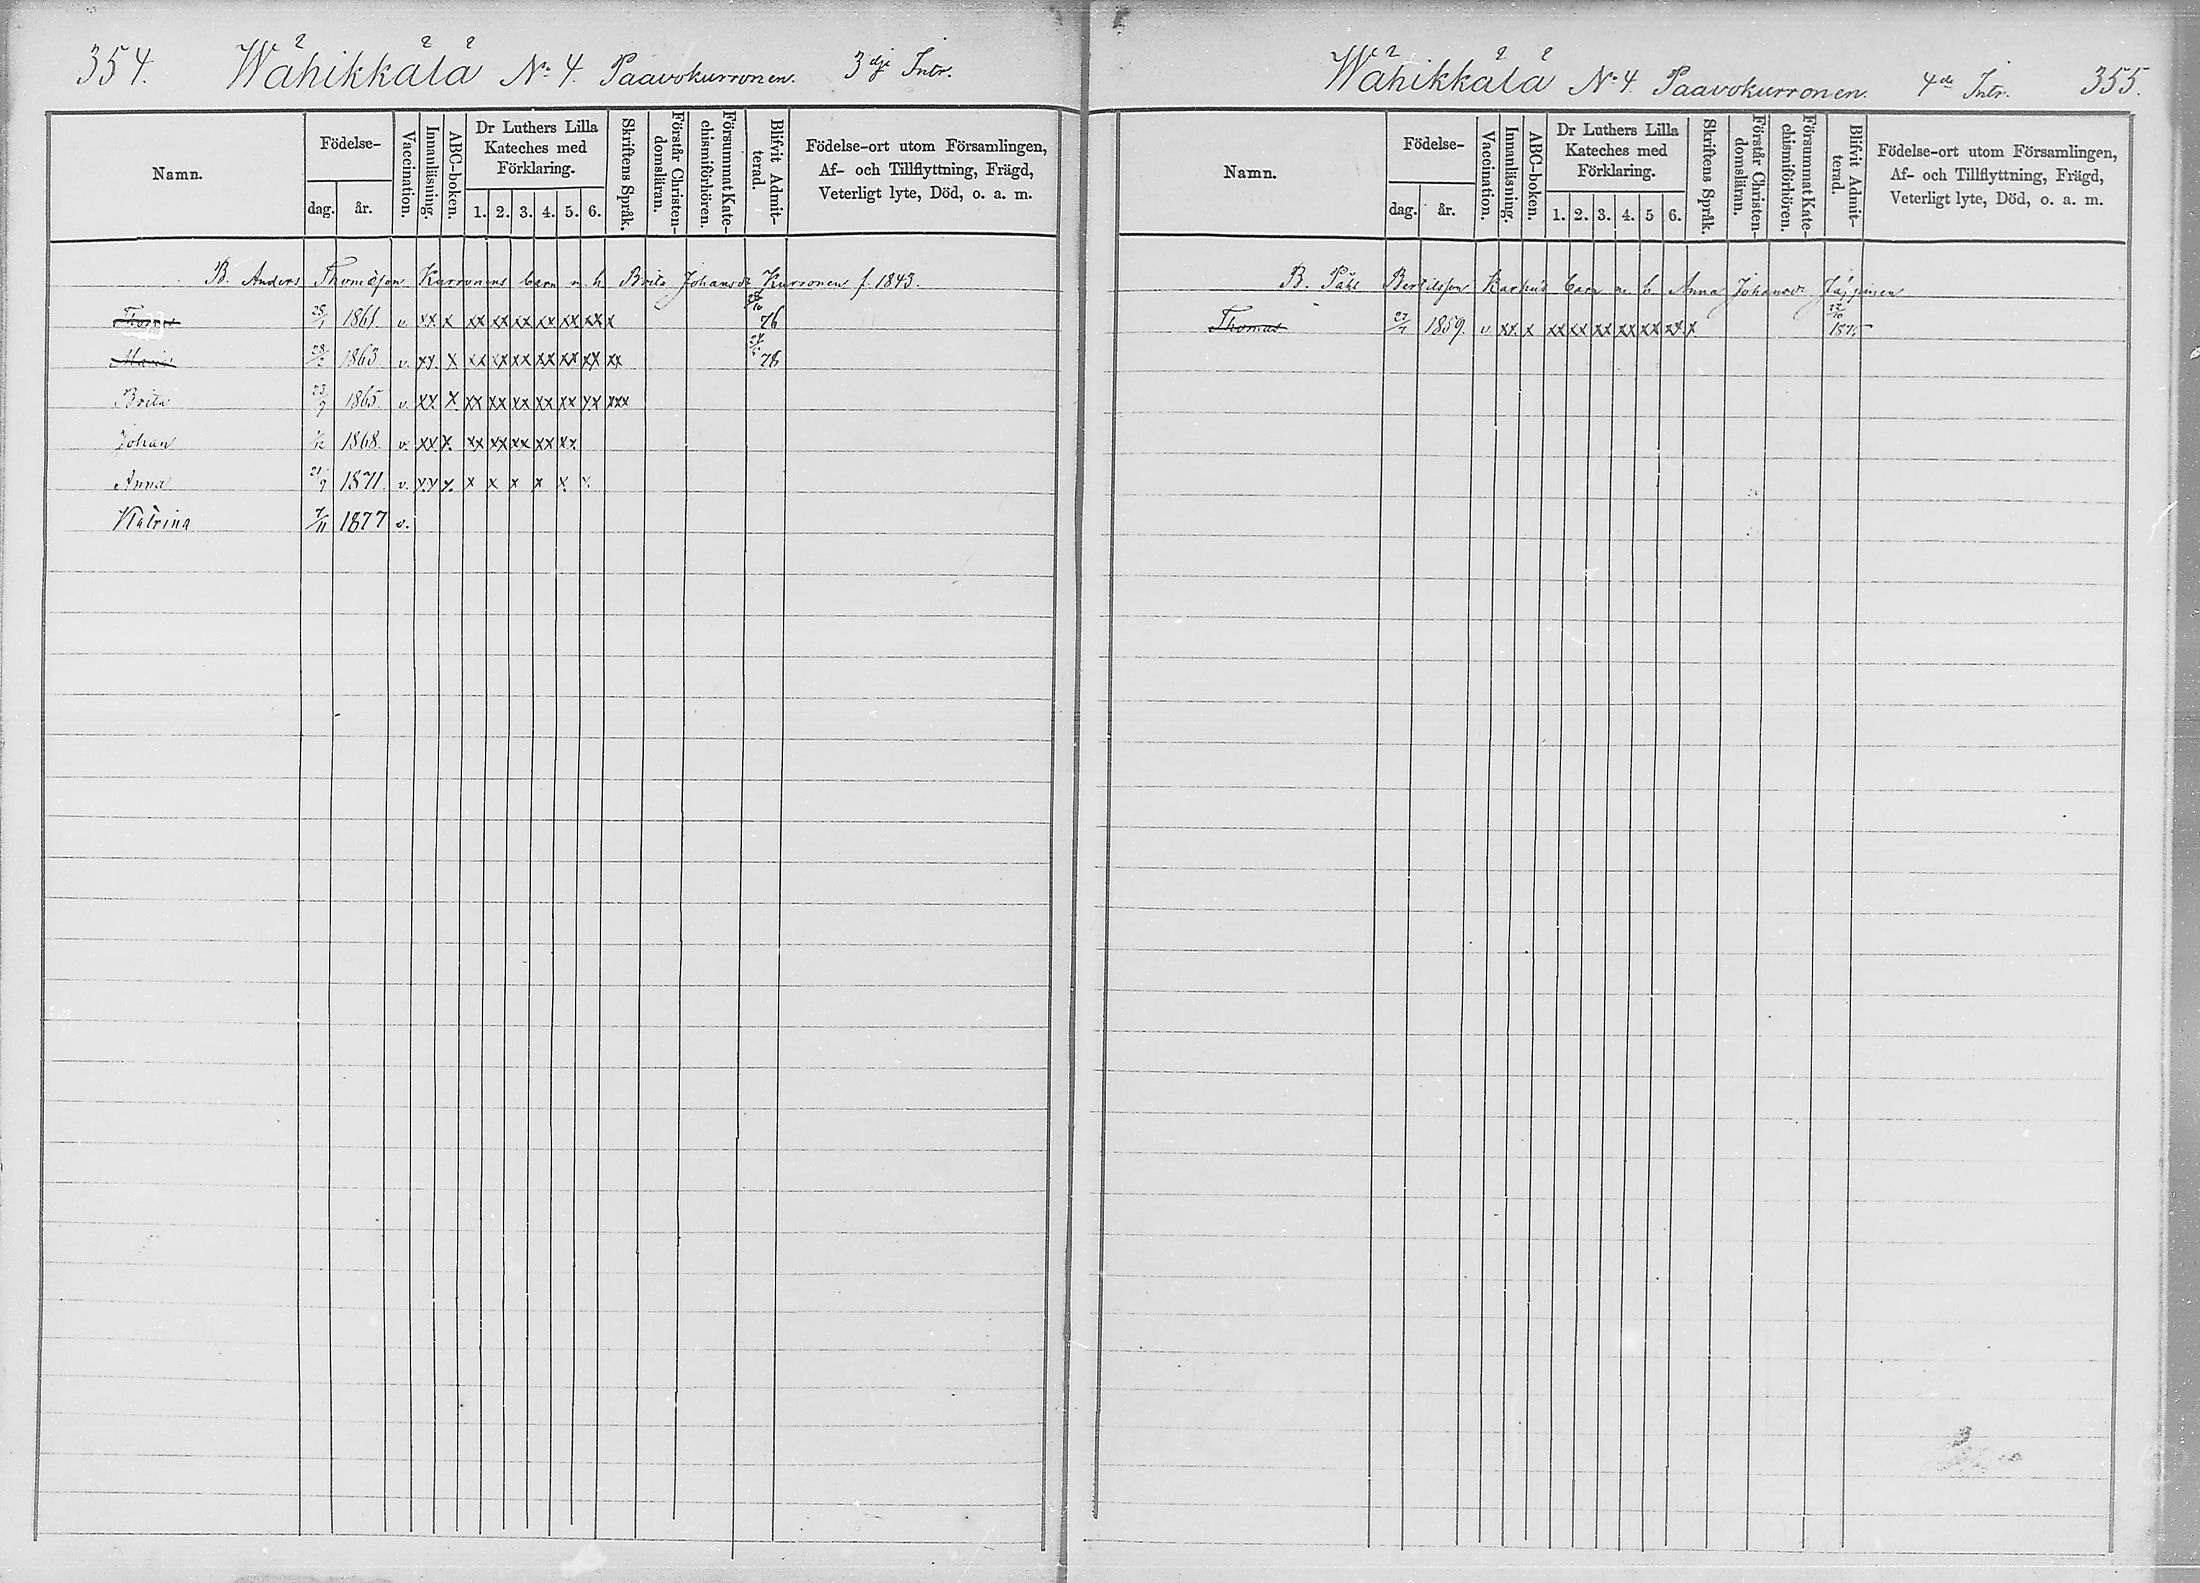 354. Wähikkälä No 4. Paavokurronen. 3dje Intr.
Namn. Födelse- dag. år. Vaccination. Innanläsning. ABC-boken. Dr Luthers Lilla Kateches med Förklaring. 1. 2. 3. 4. 5. 6. Skriftens Språk. Förstår Christendomsläran. Försummat Katechismiförhören. Blifvit Admitterad. Födelse-ort utom Församlingen, Af- och Tillflyttning, Frägd, Veterligt lyte, Död, o. a. m.
B. Anders Thomasson Kurronens barn m. h. Brita Johansdr Kurronen f. 1843.
Thomas 1861 v xx x xx xx xx xx xx xx x 76
Maria 1863 v. xx x xx xx xx xx xx xx xx 78
Brita 23/9 1865 v. xx x xx xx xx xx xx xx xxx
Johan 1868. v. xx x. xx xx xx xx xx
Anna 21/9 1871 v. xx x. x x x x x x
Katrina 7/11 1877 v.
Wähikkälä No 4. Paavokurronen. 4de Intr. 355.
Namn. Födelse- dag. år. Vaccination. Innanläsning. ABC-boken. Dr Luthers Lilla Kateches med Förklaring. 1. 2. 3. 4. 5 6. Skriftens Språk. Förstår Christendomsläran. Försummat Katechismiförhören. Blifvit Admitterad. Födelse-ort utom Församlingen, Af- och Tillflyttning, Frägd, Veterligt lyte, Död, o. a. m.
B. Påhl Bertilsson barn m. h. Anna Johansdr
Thomas 1859. v xx. x xx xx xx xx xx xx x 1875